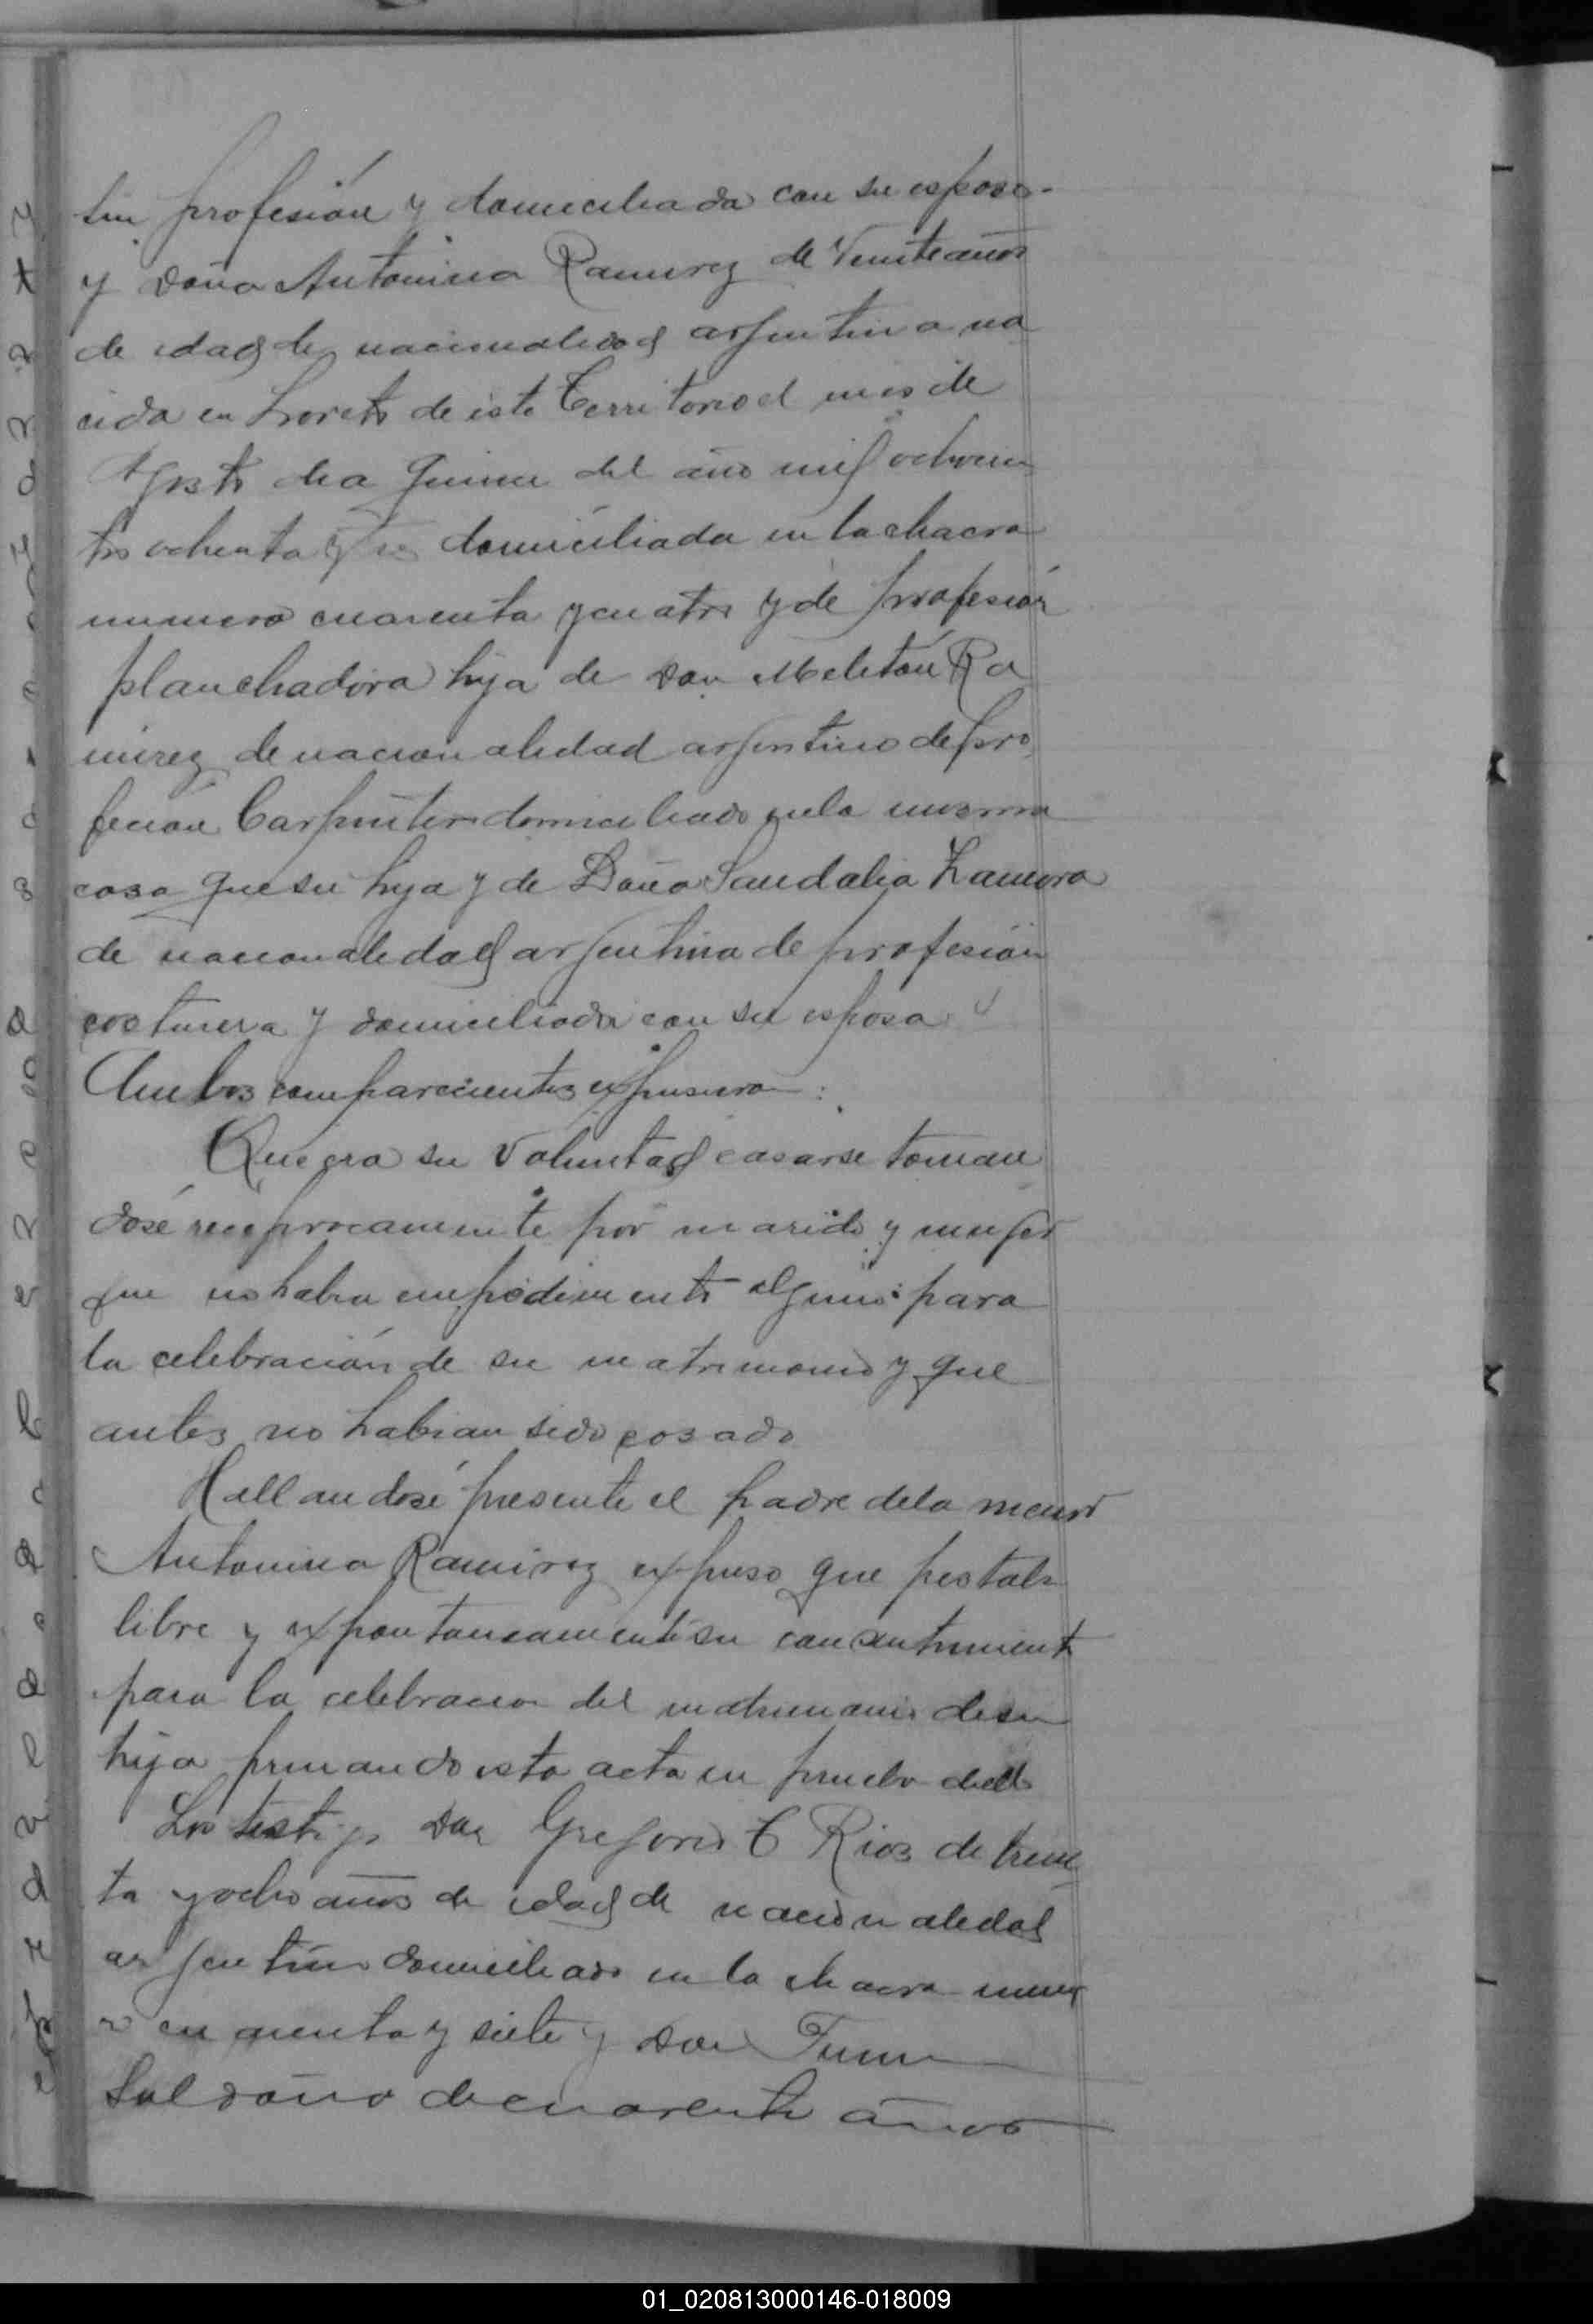 sin profesión y domiciliada con su esposo.
y doña Antonina Ramirez de Veinte años
de edad de nacionalidad argentina na
cida en Loreto de este Territorio el mes de
Agosto dia quince del año mil ochocien
tos ochenta y domiciliada en la chacra
numero cuarenta y cuatro y de profesión
planchadora hija de Don Meletón Ra
mirez de nacionalidad argentino de pro
feción Carpintero domiciliado en la misma
casa que su hija y de Doña Sandalia Zamora
de nacionalidad argentina de profesión
costurera y domiciliada con su esposo
Ambos comparecientes expusieron:
Que era su Voluntad casarse toman
dosé reciprocamente por marido y mujer
que no habia empedimento alguno para
la celebración de su matrimonio y que
antes no habian sido casado
Hallandosé presente el padre de la menor
Antonina Ramirez expuso que prestaba
libre y expontaneamente su consentimiento
para la celebracion del matrimonio de su
hija firmando esta acta en prueba de ello
Los testigos Don Gregorio C Rios de trein
ta y ocho años de edad de nacionalidad
argentino domiciliado en la chacra nume
ro cuarenta y siete y Don
Saldaño de cuarenta años
01_020813000146-018009